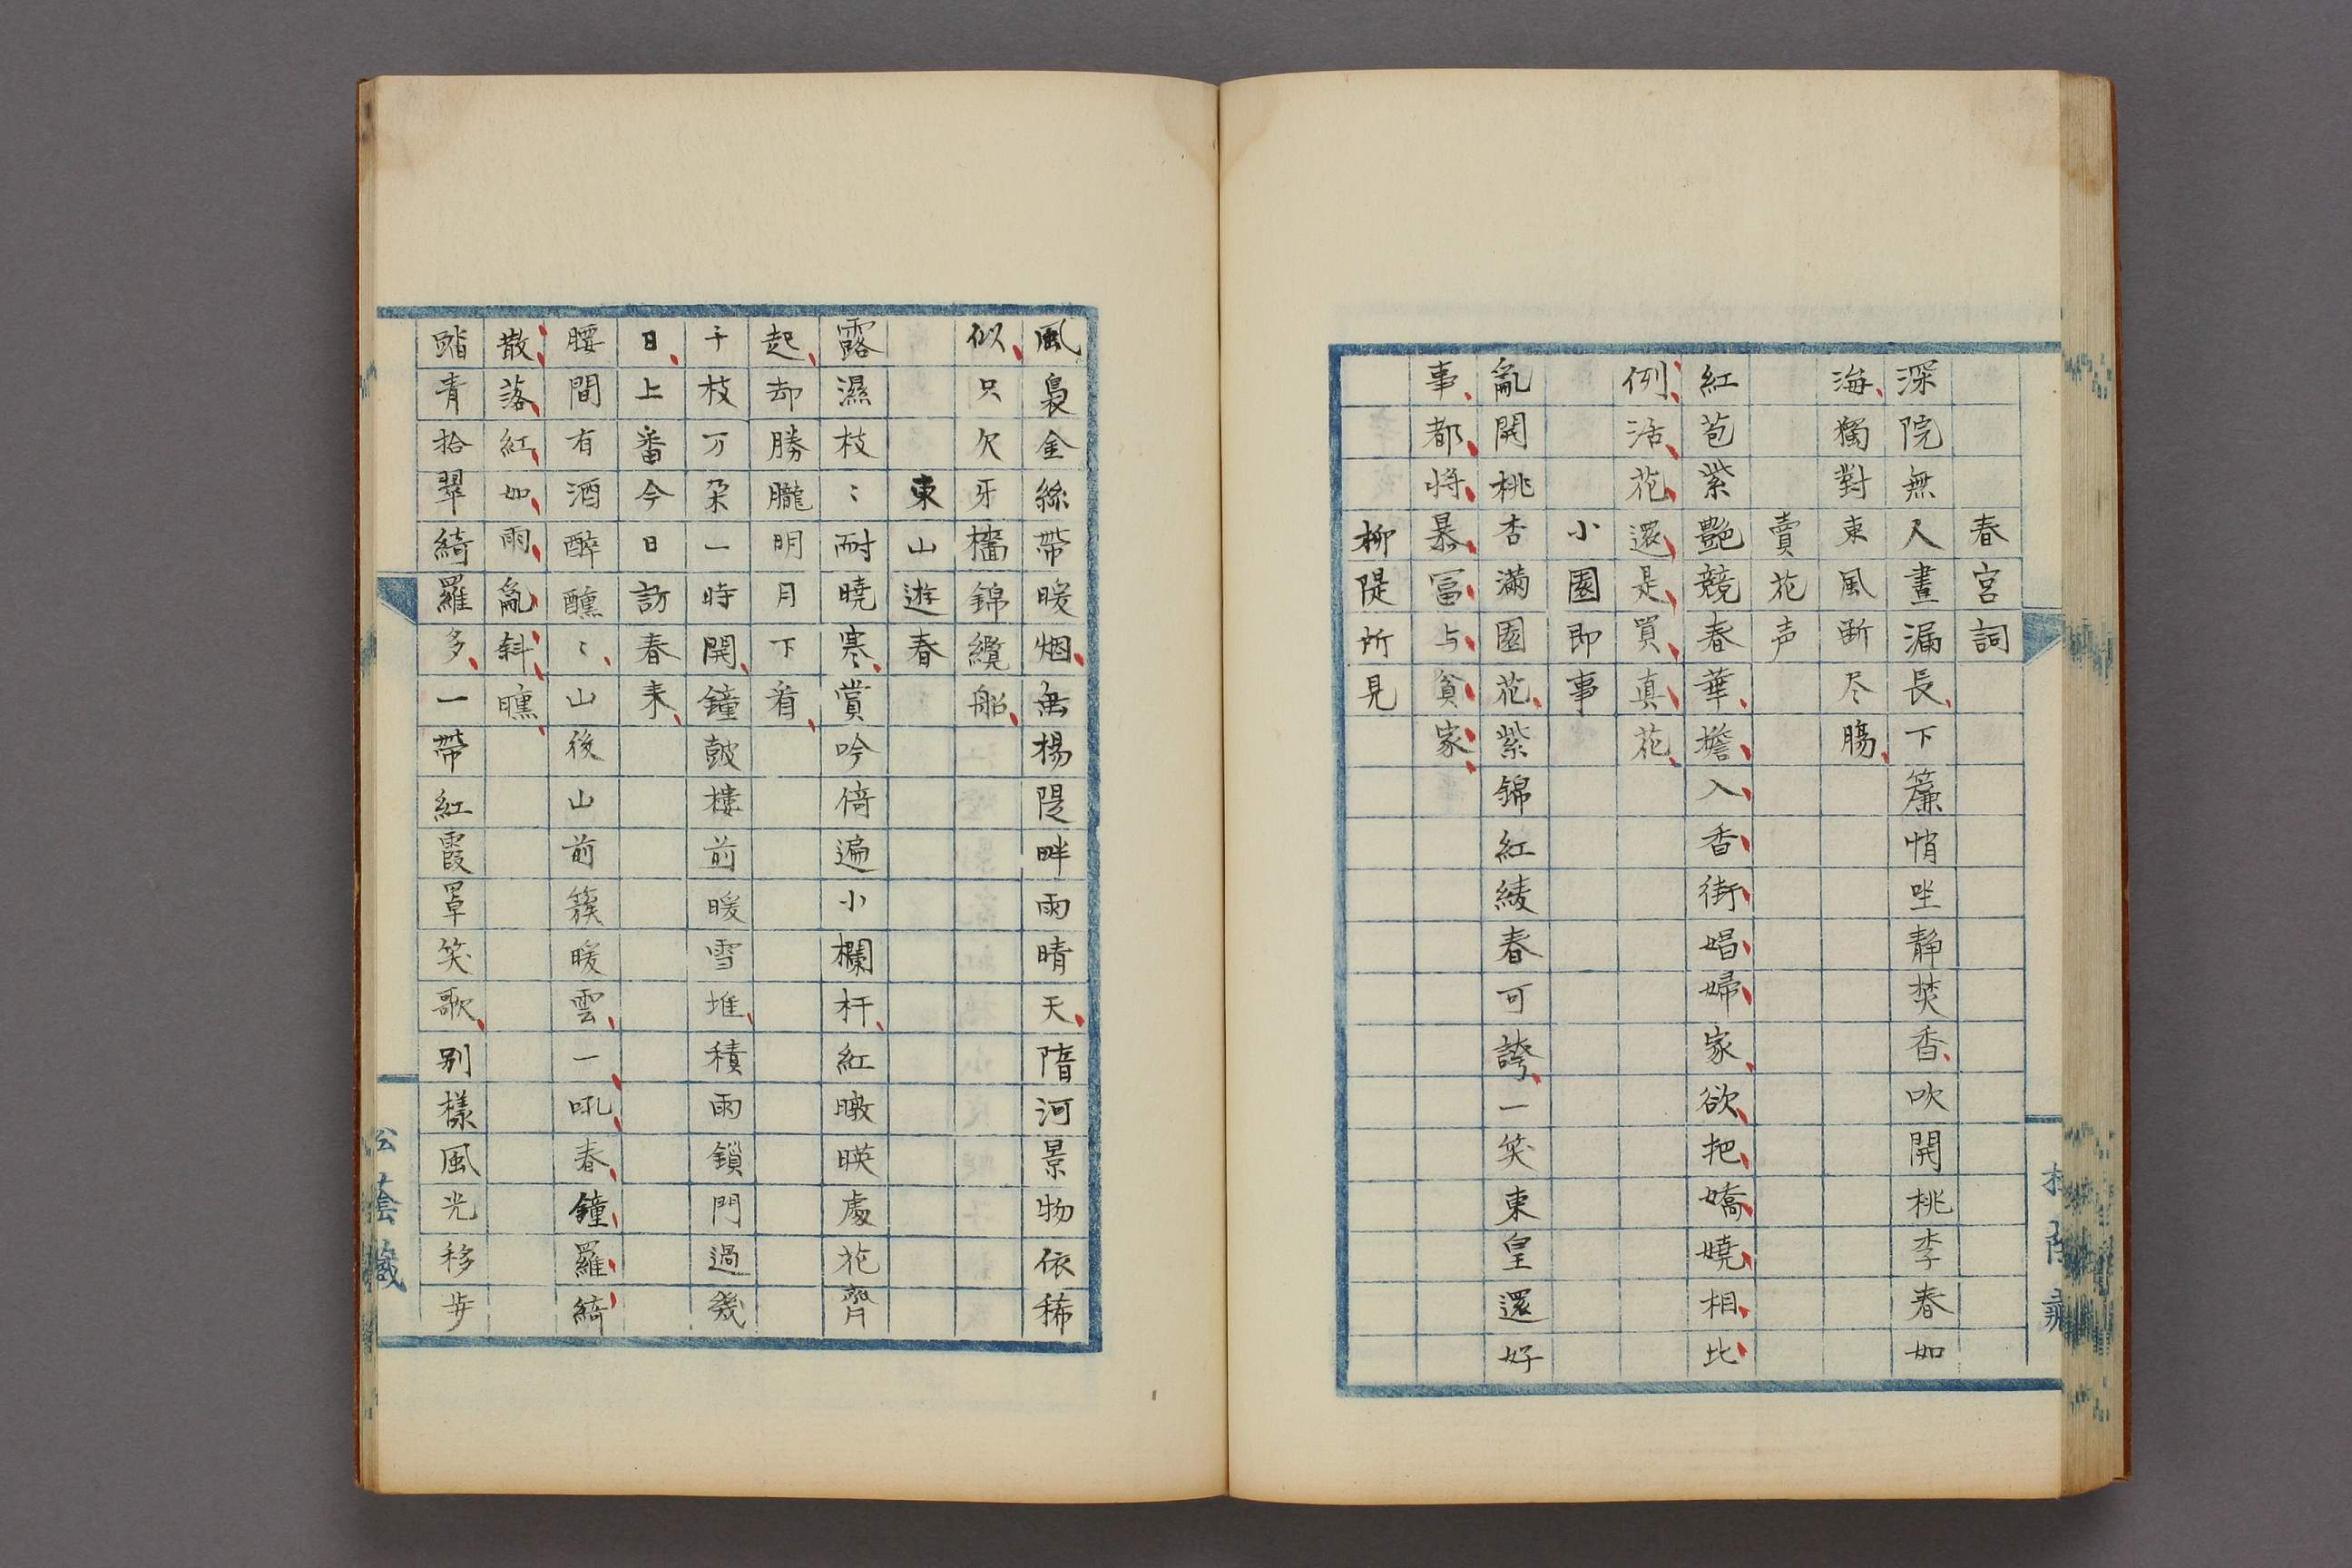 春宮詞
深院無人晝漏長下簾悄坐静焚香吹開桃李春如
海獨對東風断尽腸
賣花声
紅苞紫艷競春華擔入香街娼婦家欲把嬌嬈相比
例活花還是買真花
小園即事
亂開桃杏滿園花紫錦紅綾春可誇一笑東皇還好
事都将暴冨与貧家
柳隄所見
風裊金絲帶暖烟垂楊隄畔雨晴天隋河景物依稀
似只欠牙檣錦纜船
東山遊春
露濕枝〻耐曉寒賞吟倚遍小欄杆紅暾暎處花齊
起却勝朧明月下看
千枝万朶一時開鐘皷樓前暖雪堆積雨鎖門過幾
日上番今日訪春来
腰間有酒醉醺〻山後山前簇暖雲一吼春鐘羅綺
散落紅如雨亂斜曛
踏青拾翠綺羅多一帶紅霞罩笑歌别樣風光移步
松蔭藏